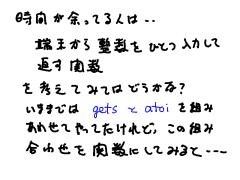 時間が余ってる人は‥
端末から整数をひとつ入力して
返す関数
を考えてみてはどうかな?
いままでは gets と atoi を組み
あわせてやってたけれど、この組み
合わせを関数にしてみると・・・